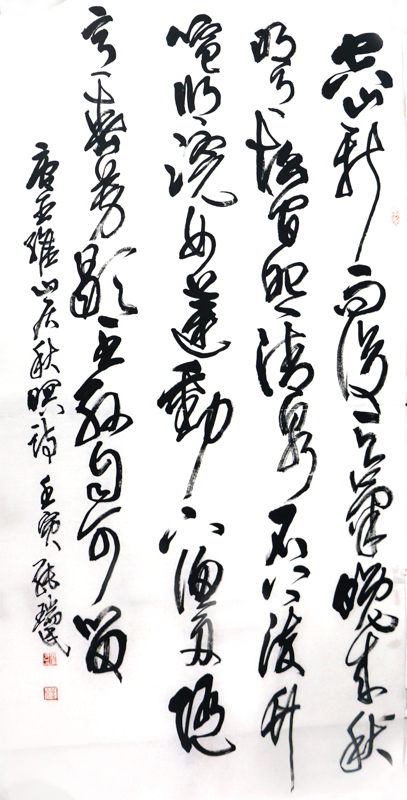 空山新雨後天氣晚來秋
明月松間照清泉石上流竹
喧歸浣女蓮動下漁舟隨
意春芳歇王孫自可留
唐王維山居秋暝詩 壬寅